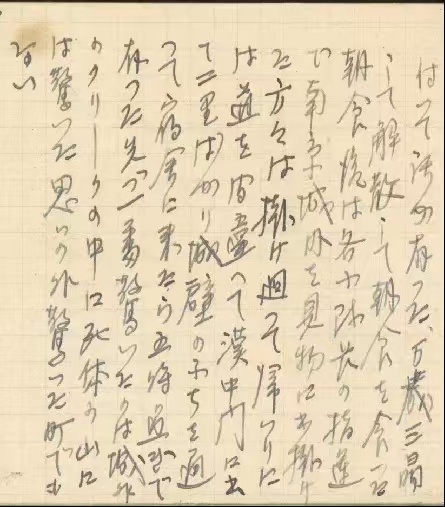 付いて話が有った、万歳三唱
して解散して朝食を食った
朝食後は各小隊長の指運
で南京城内を見物に出掛け
た方々は掛け廻って帰りに
は道を間違って漢中門に出
て二里ばかり城壁のふちを通
って宿舎に来たら五時過ぎで
有った先づ一番驚いたのは城外
のクリークの中に死体の山に
は驚いた思いの外驚った町でも
ない